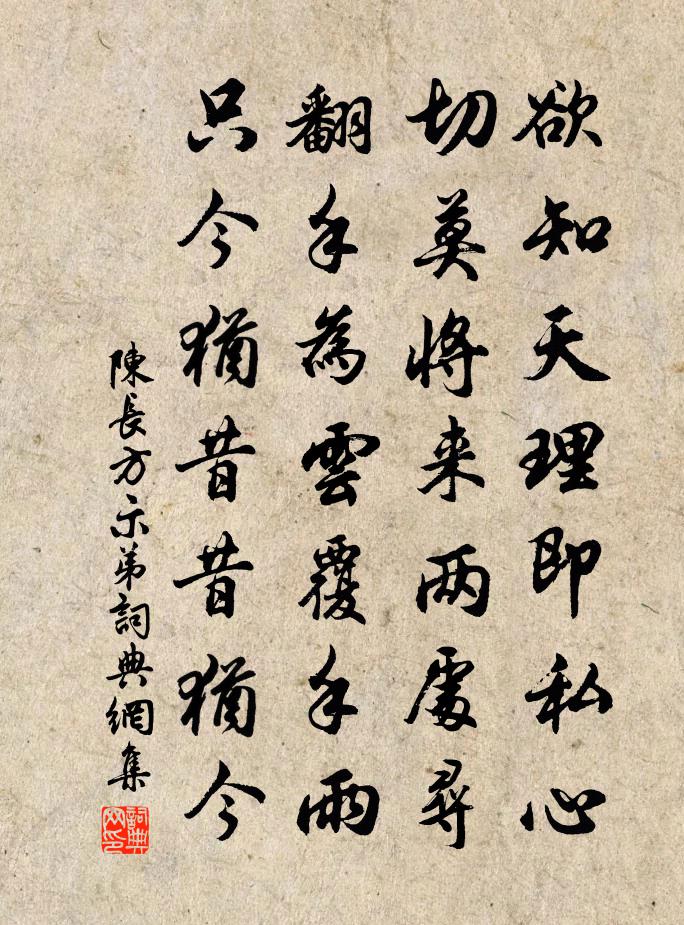 欲知天理即私心
切莫將来两處尋
翻手為雲覆手雨
只今猶昔昔猶今
陳長方示弟詞典網集
詞典网印